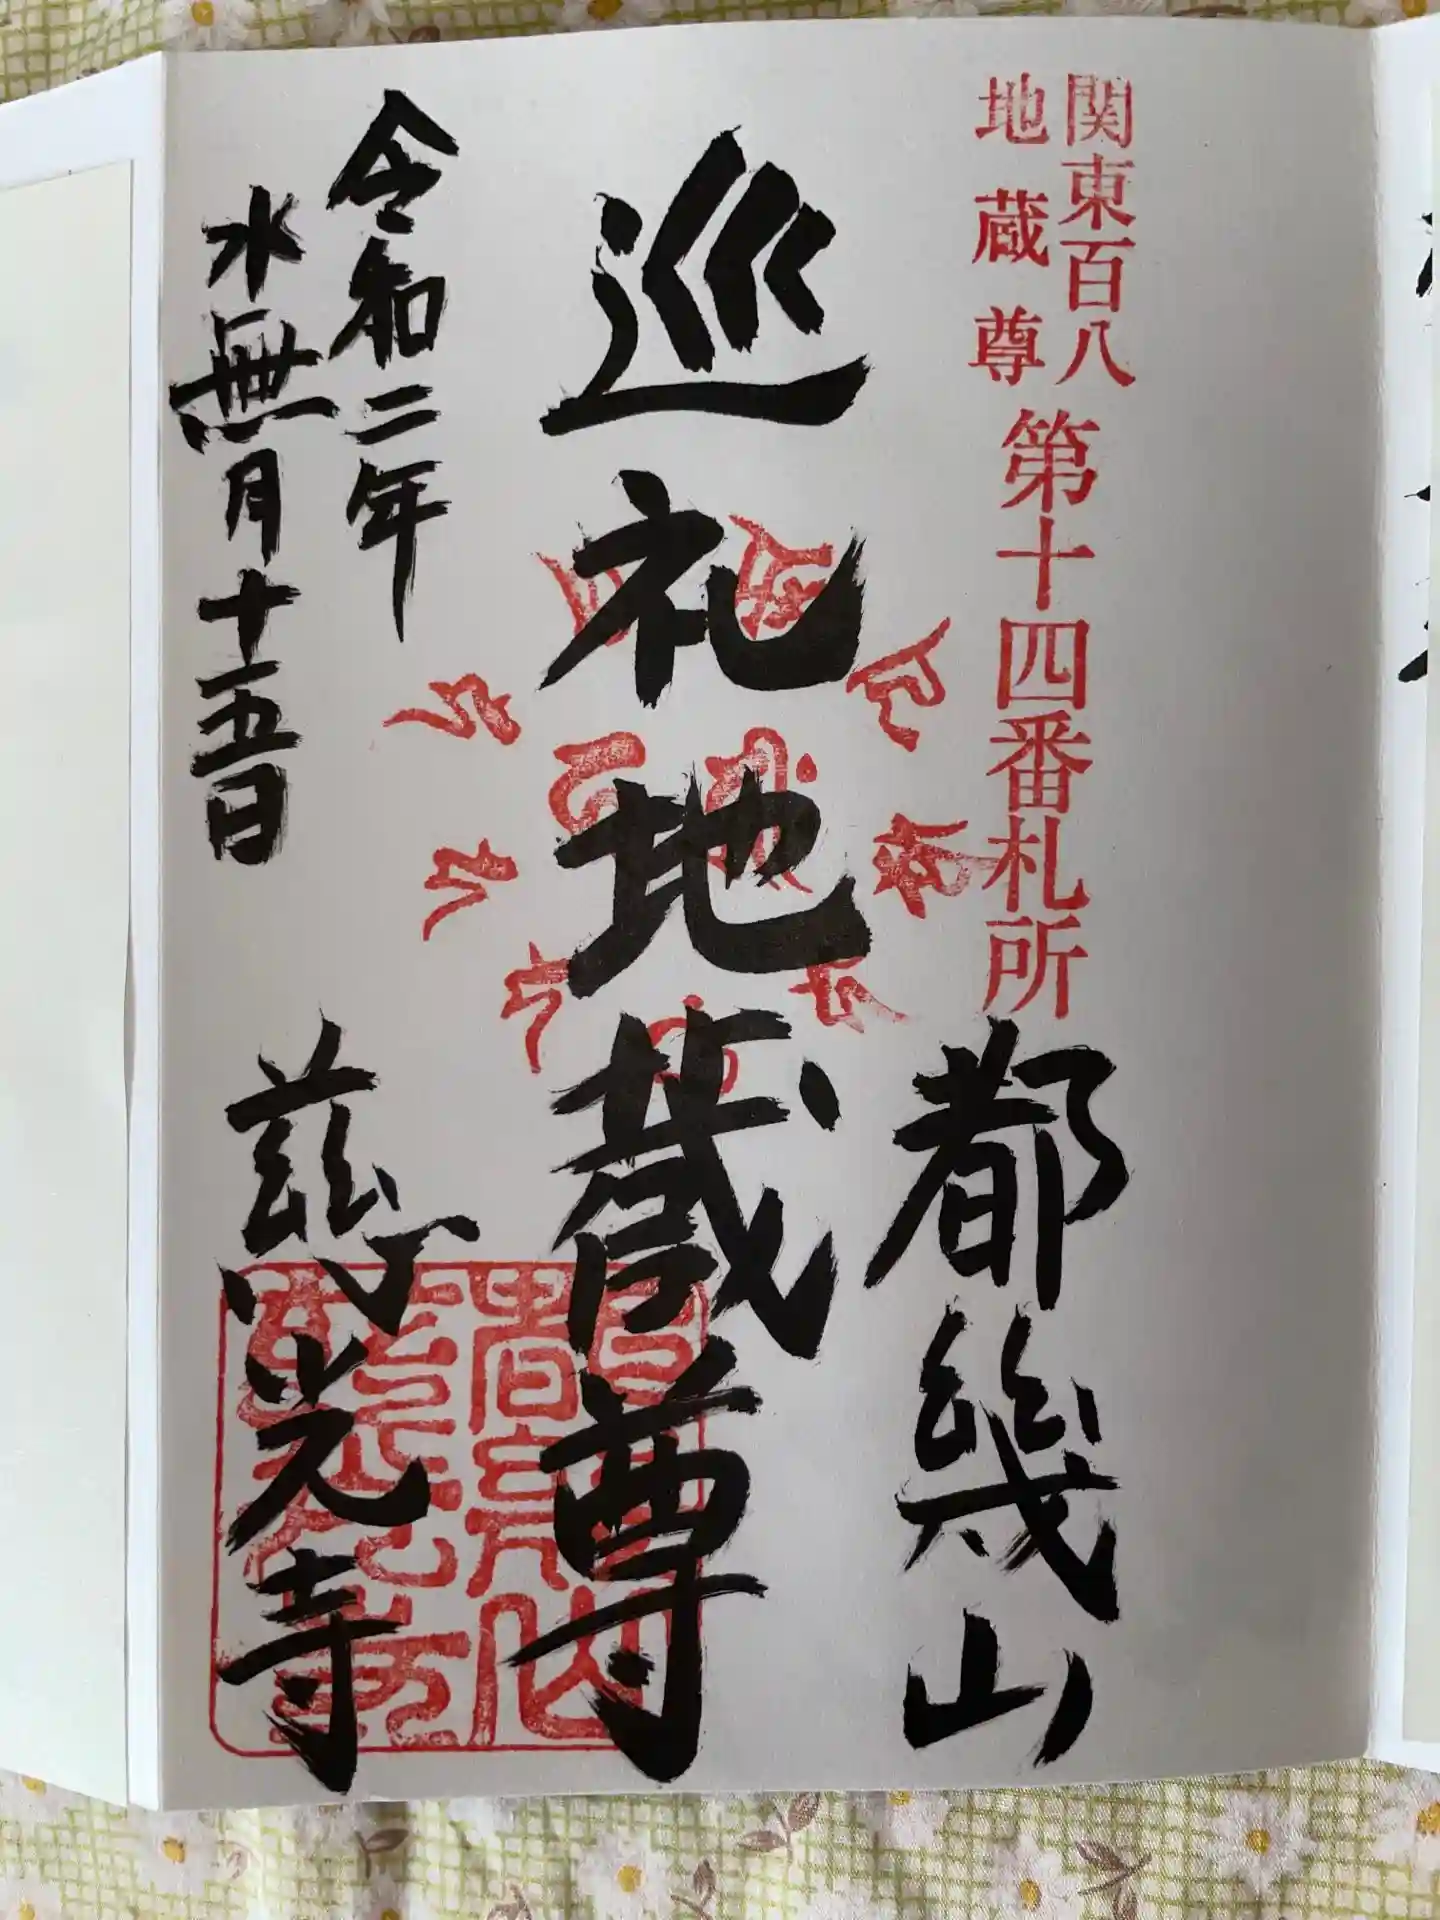 関東百八
地蔵尊
第十四番札所
都幾山
巡礼地蔵尊
令和二年
水無月十五日
慈光寺